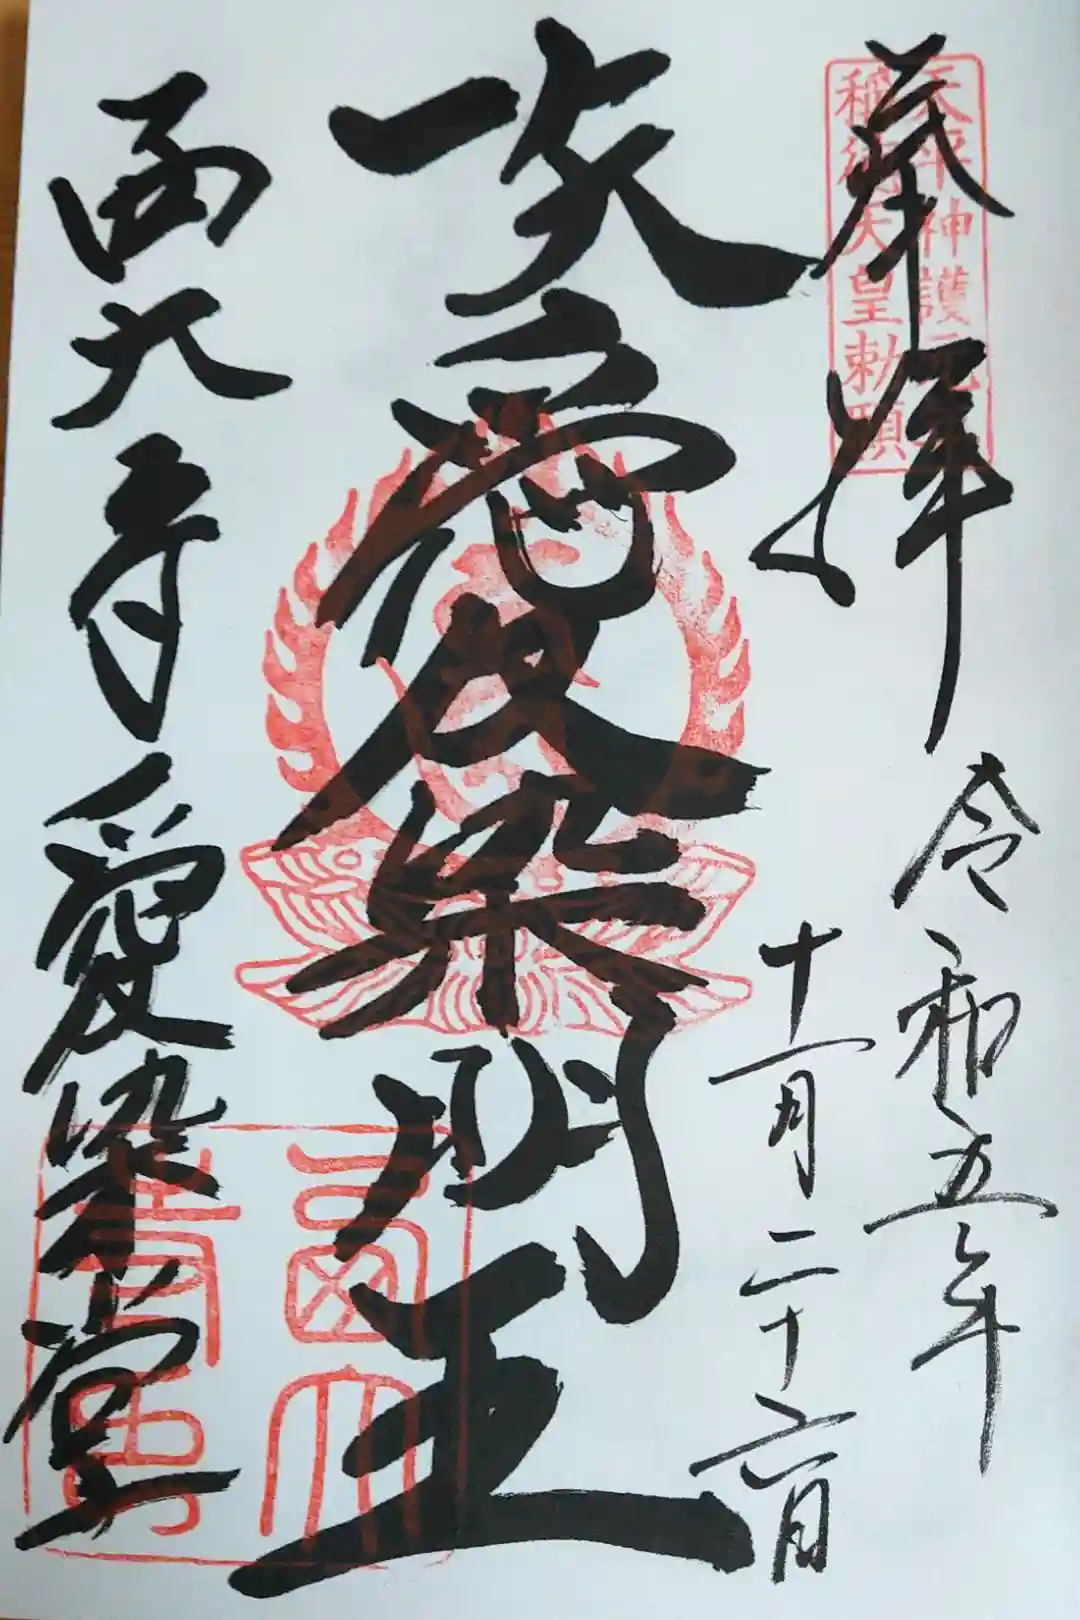 奉拝
天平神護元年
稱徳天皇勅願
令和五年
十一月二十六日
愛染明王
西大寺愛染堂